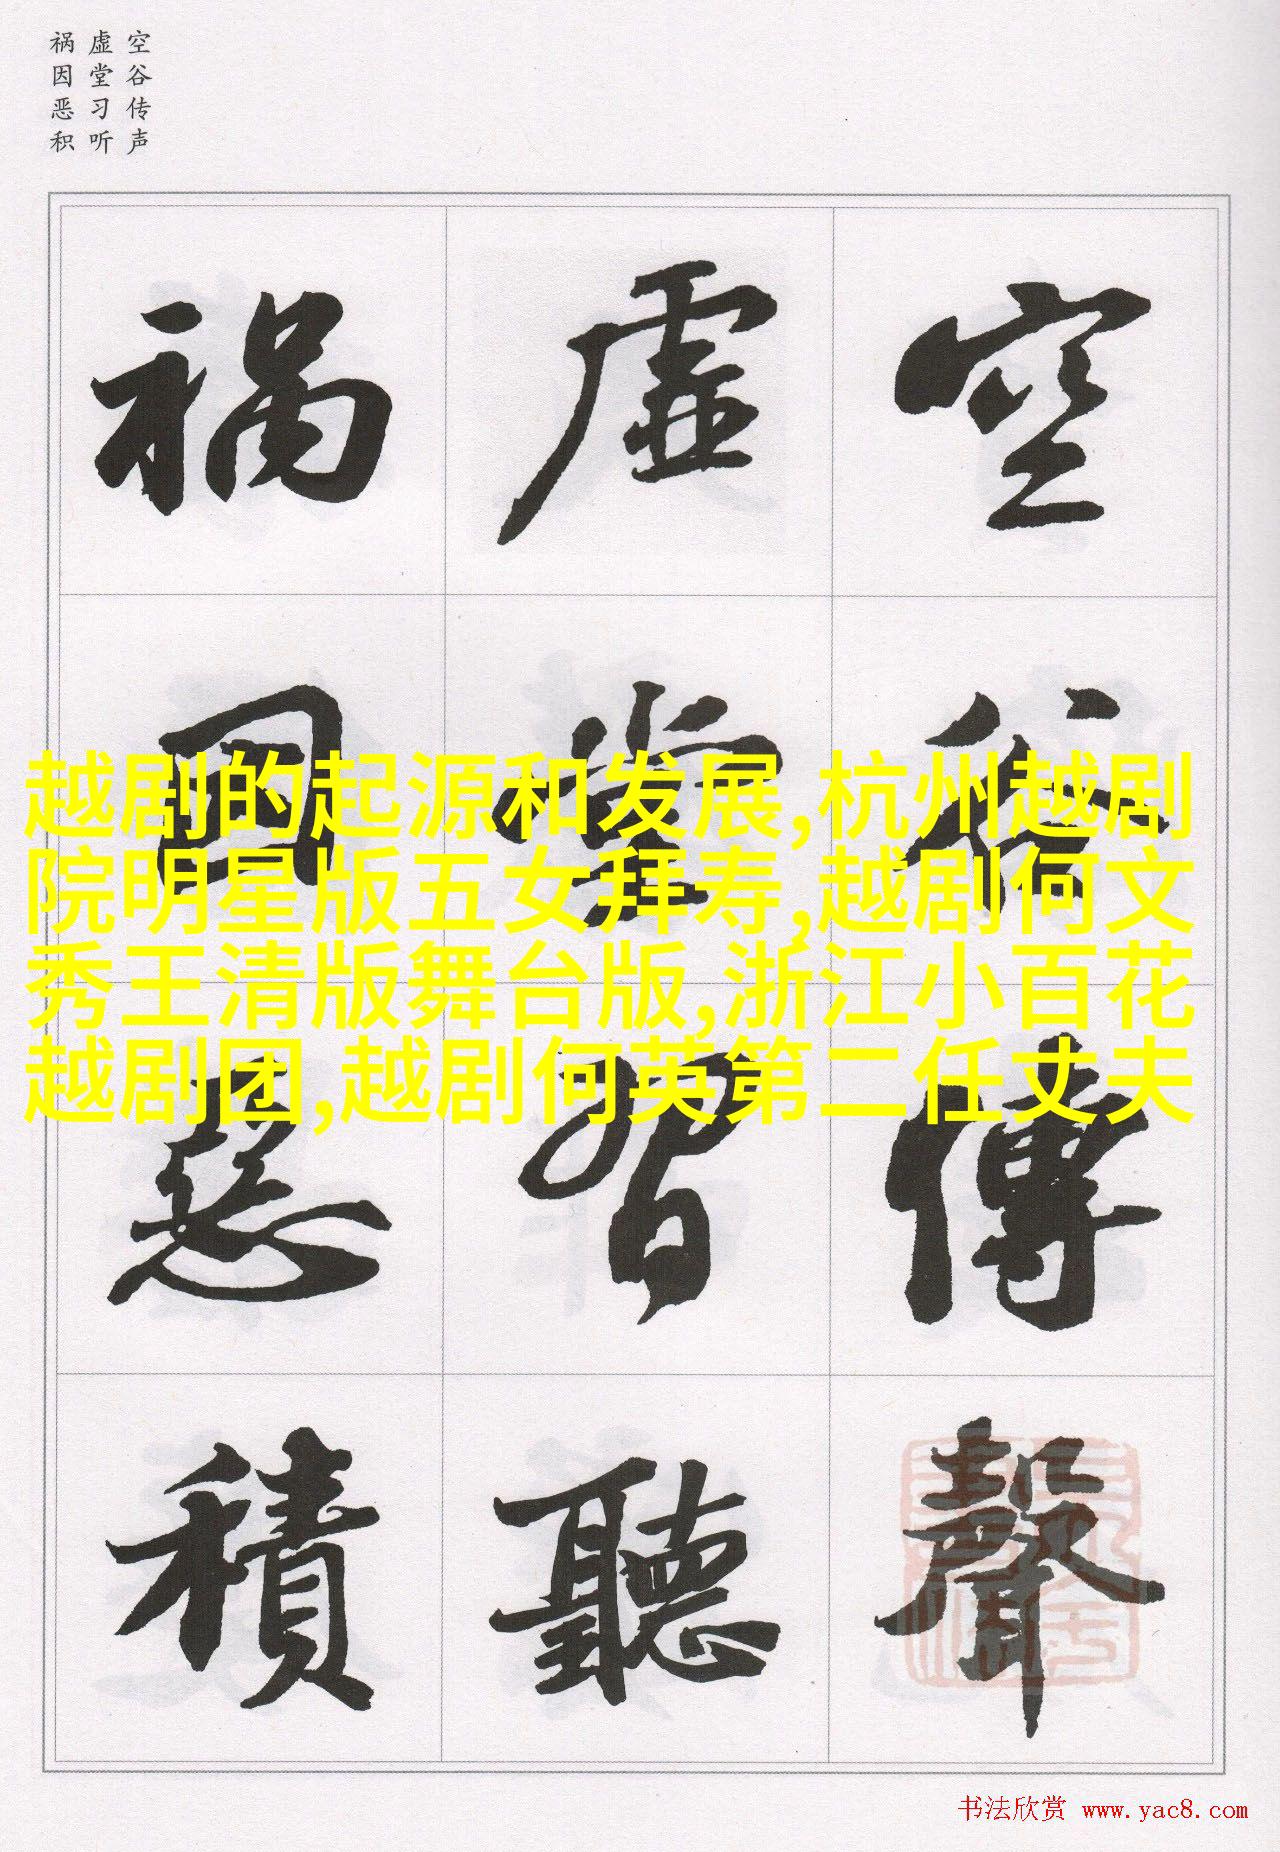 空谷传声
虚堂习听
祸因恶积
空谷傳聲
虛堂習聽
禍因惡積
越剧的起源和发展,杭州越剧
院明星版五女拜寿,越剧何文
秀王清版舞台版,浙江小百花
越剧团,越剧何英第二任丈夫
书法欣赏 www.yac8.com